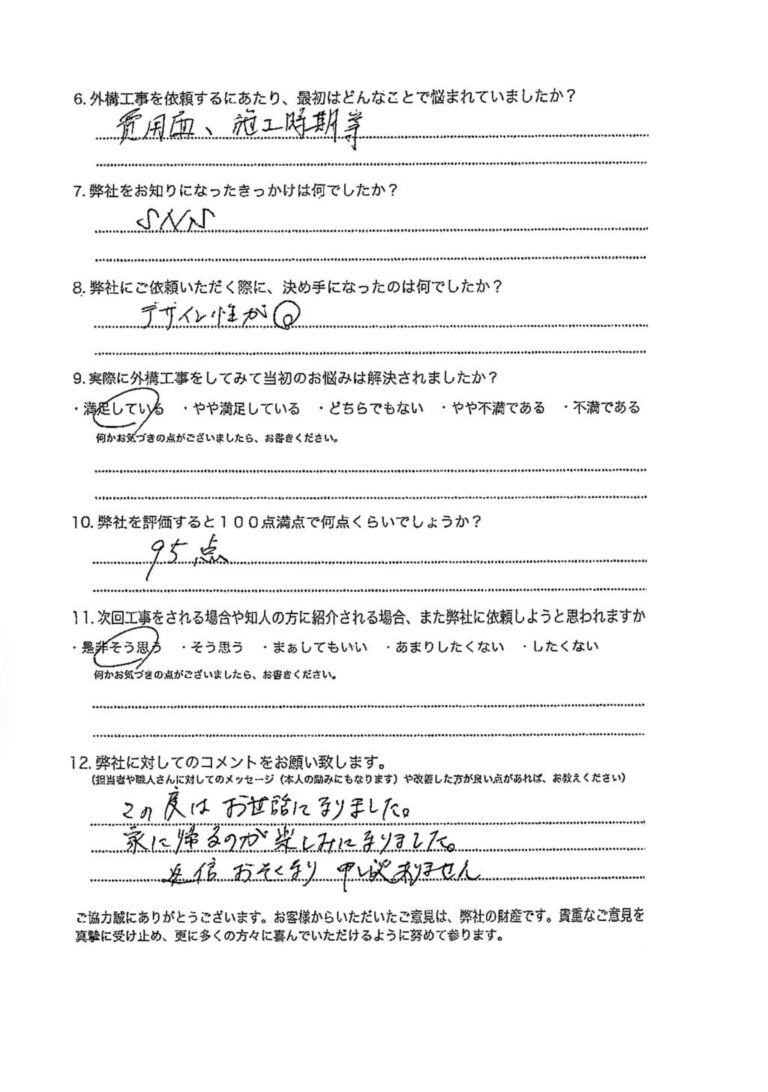 6. 外構工事を依頼するにあたり、最初はどんなことで悩まれていましたか？
費用面、施工時期等
7. 弊社をお知りになったきっかけは何でしたか？
SNS
8. 弊社にご依頼いただく際に、決め手になったのは何でしたか？
デザイン性が◎
9. 実際に外構工事をしてみて当初のお悩みは解決されましたか？
・満足している ・やや満足している ・どちらでもない ・やや不満である ・不満である
何かお気づきの点がございましたら、お書きください。
10. 弊社を評価すると１００点満点で何点くらいでしょうか？
95点
11. 次回工事をされる場合や知人の方に紹介される場合、また弊社に依頼しようと思われますか
・是非そう思う ・そう思う ・まぁしてもいい ・あまりしたくない ・したくない
何かお気づきの点がございましたら、お書きください。
12. 弊社に対してのコメントをお願い致します。
（担当者や職人さんに対してのメッセージ（本人の励みにもなります）や改善した方が良い点があれば、お教えください）
この度はお世話になりました。
家に帰るのが楽しみになりました。
返信おそくなり申し訳ありません
ご協力誠にありがとうございます。お客様からいただいたご意見は、弊社の財産です。貴重なご意見を
真摯に受け止め、更に多くの方々に喜んでいただけるように努めて参ります。